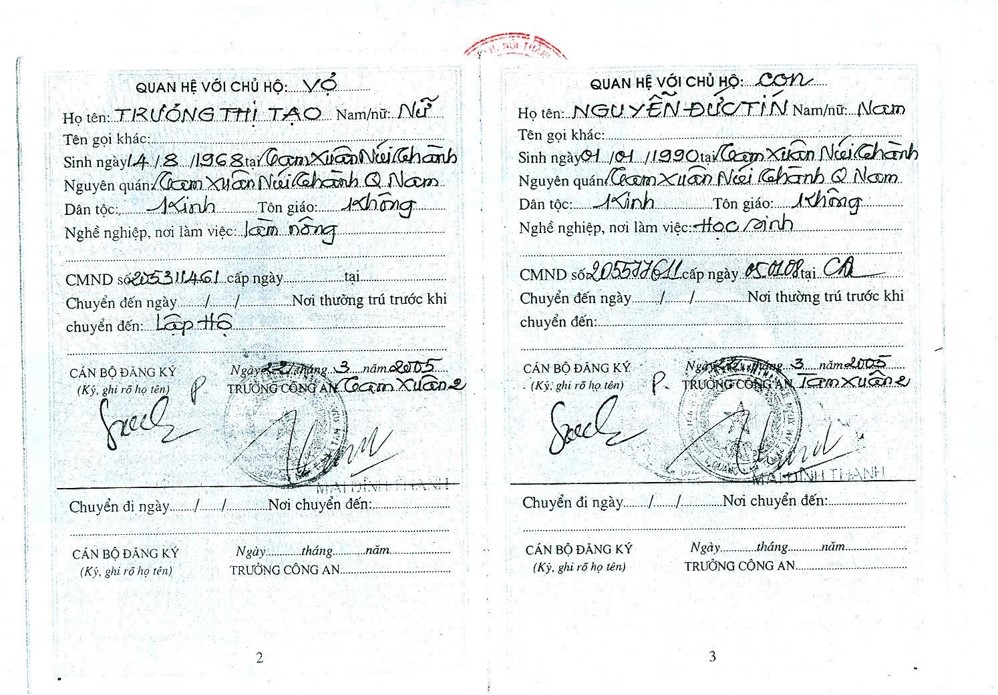 QUAN HỆ VỚI CHỦ HỘ: VỢ
Họ tên: TRƯƠNG THỊ TẠO Nam/nữ: Nữ
Tên gọi khác:
Sinh ngày 14 / 8 / 1968 tại Tam Xuân Núi Thành
Nguyên quán: Tam Xuân Núi Thành Q Nam
Dân tộc: Kinh Tôn giáo: Không
Nghề nghiệp, nơi làm việc: Làm nông
CMND số: 205311461 cấp ngày tại
Chuyển đến ngày / / Nơi thường trú trước khi
chuyển đến: Lập Hộ
CÁN BỘ ĐĂNG KÝ Ngày 22 tháng 3 năm 2005
(Ký, ghi rõ họ tên) P. TRƯỞNG CÔNG AN Tam Xuân 2
MAI ĐÌNH THANH
Chuyển đi ngày / / Nơi chuyển đến:
CÁN BỘ ĐĂNG KÝ Ngày tháng năm
(Ký, ghi rõ họ tên) TRƯỞNG CÔNG AN
2
H. NÚI THÀNH
QUAN HỆ VỚI CHỦ HỘ: Con
Họ tên: NGUYỄN ĐỨC TÍN Nam/nữ: Nam
Tên gọi khác:
Sinh ngày 01 / 01 / 1990 tại Tam Xuân Núi Thành
Nguyên quán: Tam Xuân Núi Thành Q Nam
Dân tộc: Kinh Tôn giáo: Không
Nghề nghiệp, nơi làm việc: Học sinh
CMND số: 205577611 cấp ngày 050108 tại CA
Chuyển đến ngày / / Nơi thường trú trước khi
chuyển đến:
CÁN BỘ ĐĂNG KÝ Ngày 22 tháng 3 năm 2005
(Ký, ghi rõ họ tên) P. TRƯỞNG CÔNG AN Tam Xuân 2
MAI ĐÌNH THANH
Chuyển đi ngày / / Nơi chuyển đến:
CÁN BỘ ĐĂNG KÝ Ngày tháng năm
(Ký, ghi rõ họ tên) TRƯỞNG CÔNG AN
3